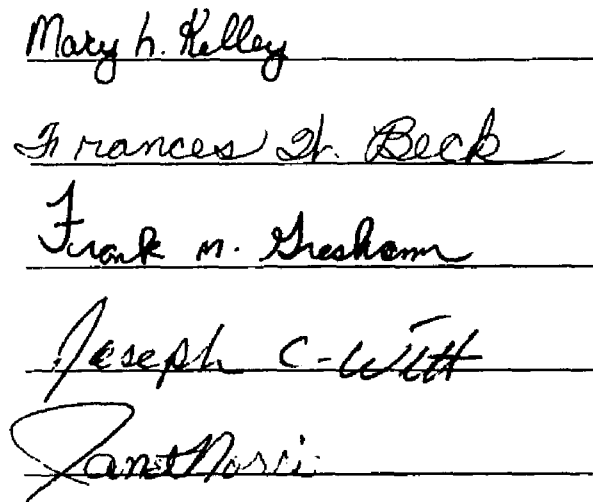 Mary L. Kelley
Frances H. Beck
Frank M. Gresham
Joseph C. Witt
Janet Norri